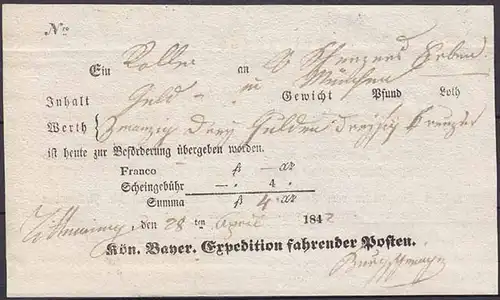 Nro
Ein Rolle an S
in München
Inhalt Geld Gewicht Pfund Loth
Werth { Zwanzig drey Gulden dreyßig Kreuzer
ist heute zur Beförderung übergeben worden.
Franco fl — xr
Scheingebühr —. 4.
Summa fl 4 xr
den 28 ten April 1842
Kön. Bayer. Expedition fahrender Posten.